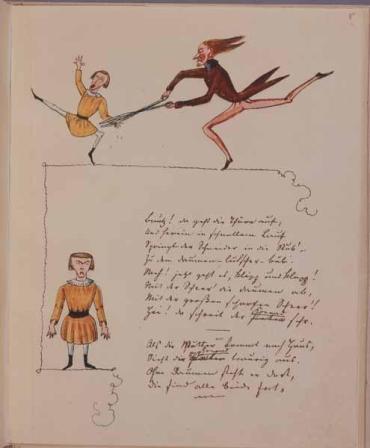 Bautz! da geht die Thüre auf,
Und herein in schnellem Lauf
Springt der Schneider in die Stub'
Zu dem Daumen-lutscher-bub.
Weh! jetzt geht es, klipp und klapp!
Mit der Scheer die Daumen ab,
Mit der großen scharfen Scheer!!
Hei! da schreit der Konrad sehr.
Als die Mutter kommt nach Haus,
Sieht der Konrad traurig aus.
Ohne Daumen steht er dort,
die sind alle beide fort.